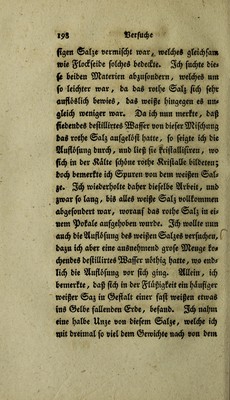 198 Versuche
ſigen Salze vermiſcht war, welches gleichſam
wie Flockſeide ſolches bedekte. Ich ſuchte die⸗
ſe beiden Materien abzuſondern, welches um
ſo leichter war, da das rothe Salz ſich ſehr
auflöslich bewies, das weiße hingegen es un⸗
gleich weniger war. Da ich nun merkte, daß
ſiedendes deſtillirtes Waſſer von dieſer Miſchung
das rothe Salz aufgelöſt hatte, ſo ſeigte ich die
Auflöſung durch, und ließ ſie kriſtalliſiren, wo
ſich in der Kälte ſchöne rothe Kriſtalle bildeten;
doch bemerkte ich Spuren von dem weißen Sal⸗
ze. Ich wiederholte daher dieſelbe Arbeit, und
zwar ſo lang, bis alles weiße Salz vollkommen
abgeſondert war, worauf das rothe Salz in ei⸗
nem Pokale aufgehoben wurde. Ich wollte nun
auch die Auflöſung des weißen Salzes verſuchen,
dazu ich aber eine ausnehmend große Menge ko⸗
chendes deſtillirtes Waſſer nöthig hatte, wo end⸗
lich die Auflöſung vor ſich ging. Allein, ich
bemerkte, daß ſich in der Flüßigkeit ein häufiger
weißer Saz in Geſtalt einer faſt weißen etwas
ins Gelbe fallenden Erde, befand. Ich nahm
eine halbe Unze von dieſem Salze, welche ich
mit dreimal ſo viel dem Gewichte nach von dem